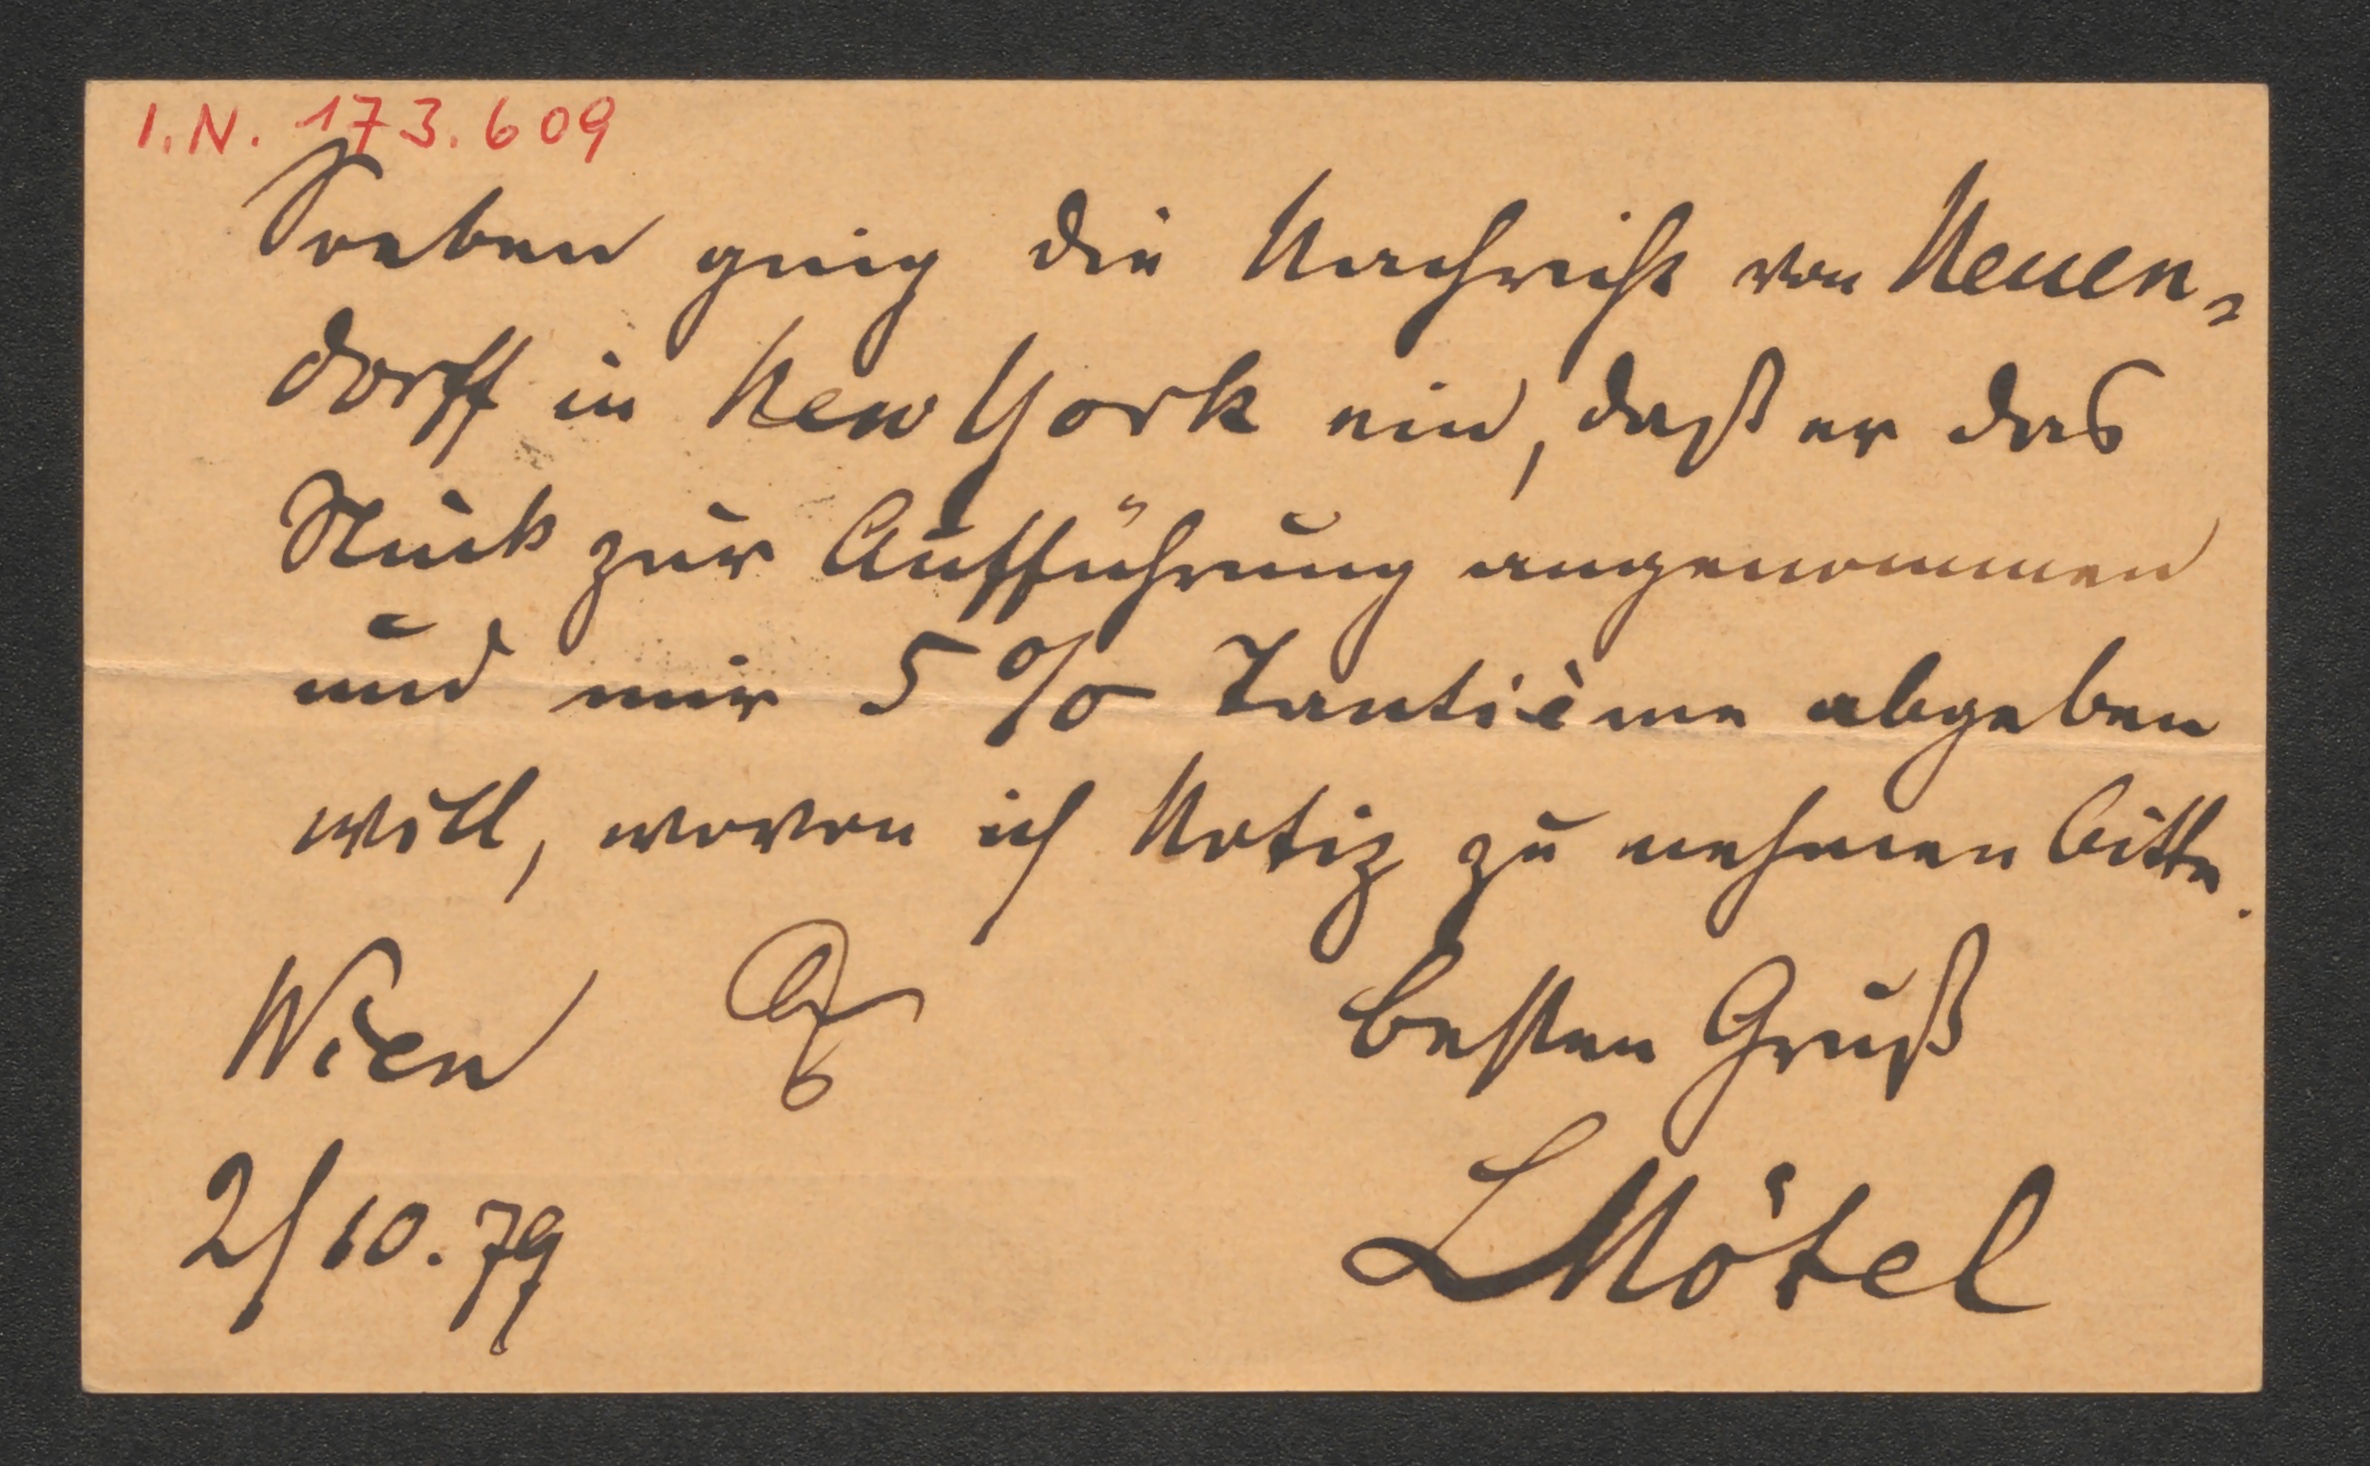 I.N. 173.609
Soeben ging die Nachricht von Neuen-
dorff in New York ein, daß er das
Stück zur Aufführung angenommen
und mir 5 % Tantième abgeben
will, wovon ich Notiz zu nehmen bitte.
Wien
besten Gruß
2/10.79
LMötel